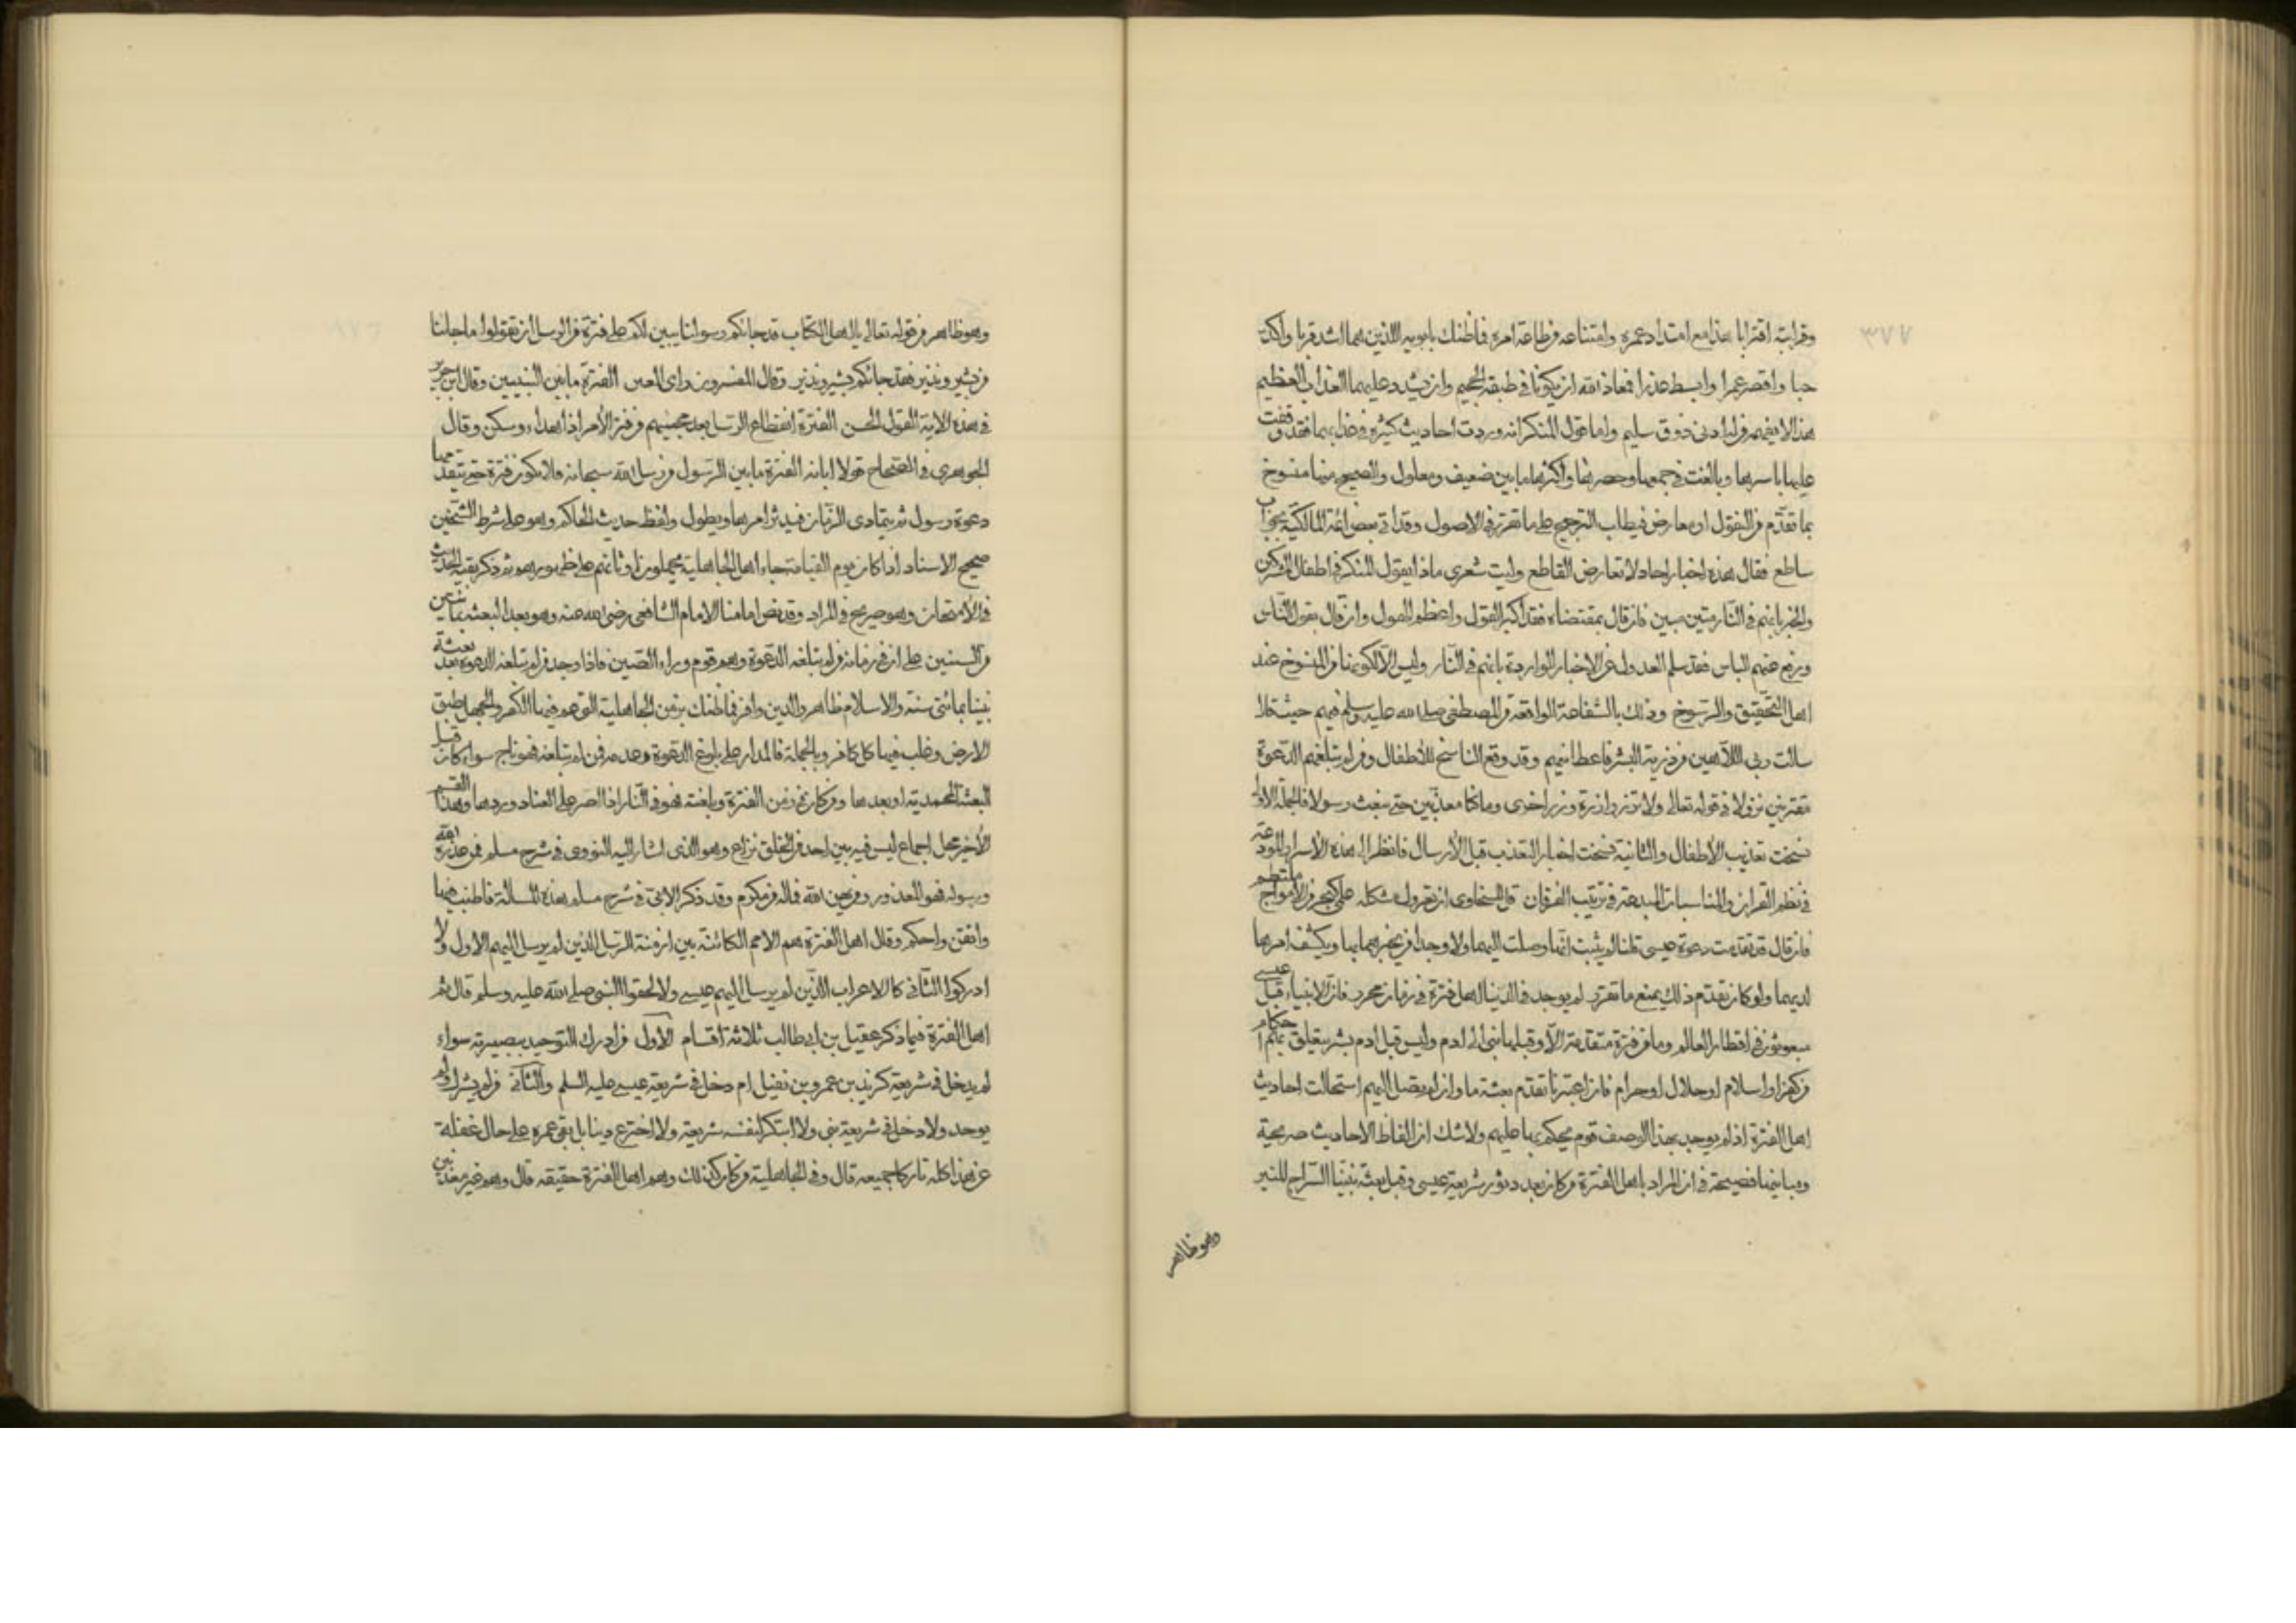 ٣٧٧
وقرابته اقترابا هذا مع امتداد عمره وامتناعه من طاعة امره فما ظنك بابويه اللذين هما اشد قربا واكد
حبا واقصر عمرا وابسط عذرا فمعاذ الله ان يكونا في طبقة الجحيم وان يشدد عليهما العذاب العظيم
هذا لا يفهمه من له ادنى ذوق سليم واما قول المنكر انه وردت احاديث كثيرة في عذابهما فقد وقفت
عليها باسرها وبالغت في جمعها وحصرها واكثرها ما بين ضعيف ومعلول والصحيح منها منسوخ
بما تقدم من النقول او معارض فيطلب الترجيح على ما تقرر في الاصول وقد اتى بعض ائمة المالكية بجواب
ساطع فقال هذه اخبار احاد لا تعارض القاطع وليت شعري ماذا يقول المنكر في اطفال المشركين
والخبر بانهم في النار متين مبين فان قال بمقتضاه فقد اكبر القول واعظم الهول وان قال بقول الناس
ورفع عنهم الباس فقد سلم العدول عن الاخبار الواردة بانهم في النار وليس الا لكونها من المنسوخ عند
اهل التحقيق والرسوخ وذلك بالشفاعة الواقعة من المصطفى صلى الله عليه وسلم فيهم حيث قال
سالت ربي اللاهين من ذرية البشر فاعطانيهم وقد وقع الناسخ للاطفال ومن لم تبلغهم الدعوة
مقترنين نزولا في قوله تعالى ولا تزر وازرة وزر اخرى وما كنا معذبين حتى نبعث رسولا فالجملة الاولى
نسخت تعذيب الاطفال والثانية نسخت اخبار التعذيب قبل الارسال فانظر الى هذه الاسرار المودعة
في نظم القران والمناسبات المبدعة في ترتيب الفرقان قال السخاوي ان تقرول مشكله على كبحر من الامواج ملتطم
فان قال قد تقدمت دعوة عيسى قلنا لم يثبت انها وصلت اليهما ولا وجدا من يخبرهما بها ويكشف امرها
لديهما ولو كان تقدم ذلك يمنع ما تقرر لم يوجد في الدنيا اهل فترة في زمان محرر فان الانبياء قبل عيسى
مبعوثون في اقطار العالم وما من فترة متقدمة الا وقبلها نبي الى ادم وليس قبل ادم بشر يتعلق بهم احكام
من كفر او اسلام او حلال او حرام فان اعتبرنا تقدم بعثة ما وان لم يصل اليهم استحالت احاديث
اهل الفترة اذ لم يوجد بهذا الوصف قوم يحكم بها عليهم ولا شك ان الفاظ الاحاديث صريحة
ومبانيها فصيحة في ان المراد باهل الفترة من كان بعد دثور شريعة عيسى وقبل بعثة نبينا السراج المنير
وهو ظاهر
وهو ظاهر من قوله تعالى يا اهل الكتاب قد جاءكم رسولنا يبين لكم على فترة من الرسل ان تقولوا ما جاءنا
من بشير ونذير فقد جاءكم بشير ونذير وقال المفسرون واي العين الفترة ما بين النبيين وقال ابن جرير
في هذه الاية القول الحسن الفترة انقطاع الرسل بعد مجيئهم من فتر الامر اذا هدا وسكن وقال
الجوهري في الصحاح قولا ابانه الفترة ما بين الرسول من رسل الله سبحانه فلا تكون فترة حتى تتقدمها
دعوة رسول ثم يتمادى الزمان فيدثر امرها ويطول ولفظ حديث الحاكم وهو على شرط الشيخين
صحيح الاسناد اذا كان يوم القيامة جاء اهل الجاهلية يحملون اوثانهم على ظهورهم ثم ذكر بقية الحديث
في الامتحان وهو صريح في المراد وقد نص امامنا الامام الشافعي رضي الله عنه وهو بعد البعثة بمائتين
من السنين على ان في زمانه من لم تبلغه الدعوة وهم قوم وراء الصين فاذا وجد من لم تبلغه الدعوة بعد بعثة
نبينا بمائتي سنة والاسلام ظاهر والدين وافر فما ظنك بزمن الجاهلية التي عم فيها الكفر والجهل طبق
الارض وغلب فيها كل كافر وبالجملة فالمدار على بلوغ الدعوة وعدمه فمن لم تبلغه فهو ناج سواء كان قبل
البعثة المحمدية او بعدها ومن كان في زمن الفترة وبلغته فهو في النار اذا اصر على العناد وردها وهذا القسم
الاخير محل اجماع ليس فيه بين احد من الخلق نزاع وهو الذي اشار اليه النووي في شرح مسلم فمن عذره الله
ورسوله فهو المعذور ومن يهين الله فما له من مكرم وقد ذكر الابي في شرح مسلم هذه المسألة فاطنب فيها
واتقن واحكم وقال اهل الفترة هم الامم الكائنة بين ازمنة الرسل الذين لم يرسل اليهم الاول ولا
ادركوا الثاني كالاعراب الذين لم يرسل اليهم عيسى ولا لحقوا النبي صلى الله عليه وسلم قال ثم
اهل الفترة فيما ذكر عقيل بن ابي طالب ثلاثة اقسام الاول من ادرك التوحيد ببصيرته سواء
لم يدخل في شريعة كزيد بن عمرو بن نفيل ام دخل في شريعة عيسى عليه السلم والثاني من لم يشرك ولم
يوحد ولا دخل في شريعة نبي ولا ابتكر لنفسه شريعة ولا اخترع دينا بل بقي عمره على حال غفلة
عن هذا كله تاركا جميعه قال وفي الجاهلية من كان كذلك وهم اهل الفترة حقيقة قال وهم غير معذبين